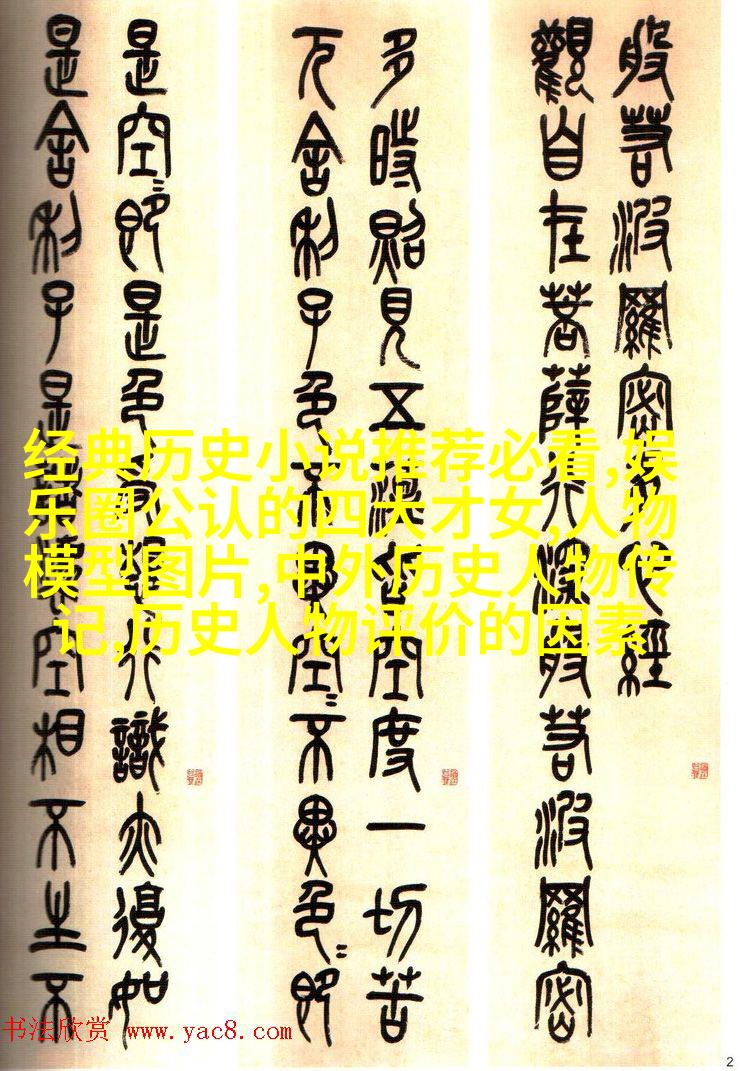 般若波羅密多心經
觀自在菩薩行深般若波羅密
多時照見五蘊皆空度一切苦
厄舍利子色不異空〻不異色〻即
是空〻即是色受想行識亦復如
是舍利子是諸法空相不生不
经典历史小说推荐必看,娱
乐圈公认的四大才女,人物
模型图片,中外历史人物传
记,历史人物评价的因素
书法欣赏 www.yac8.com
2